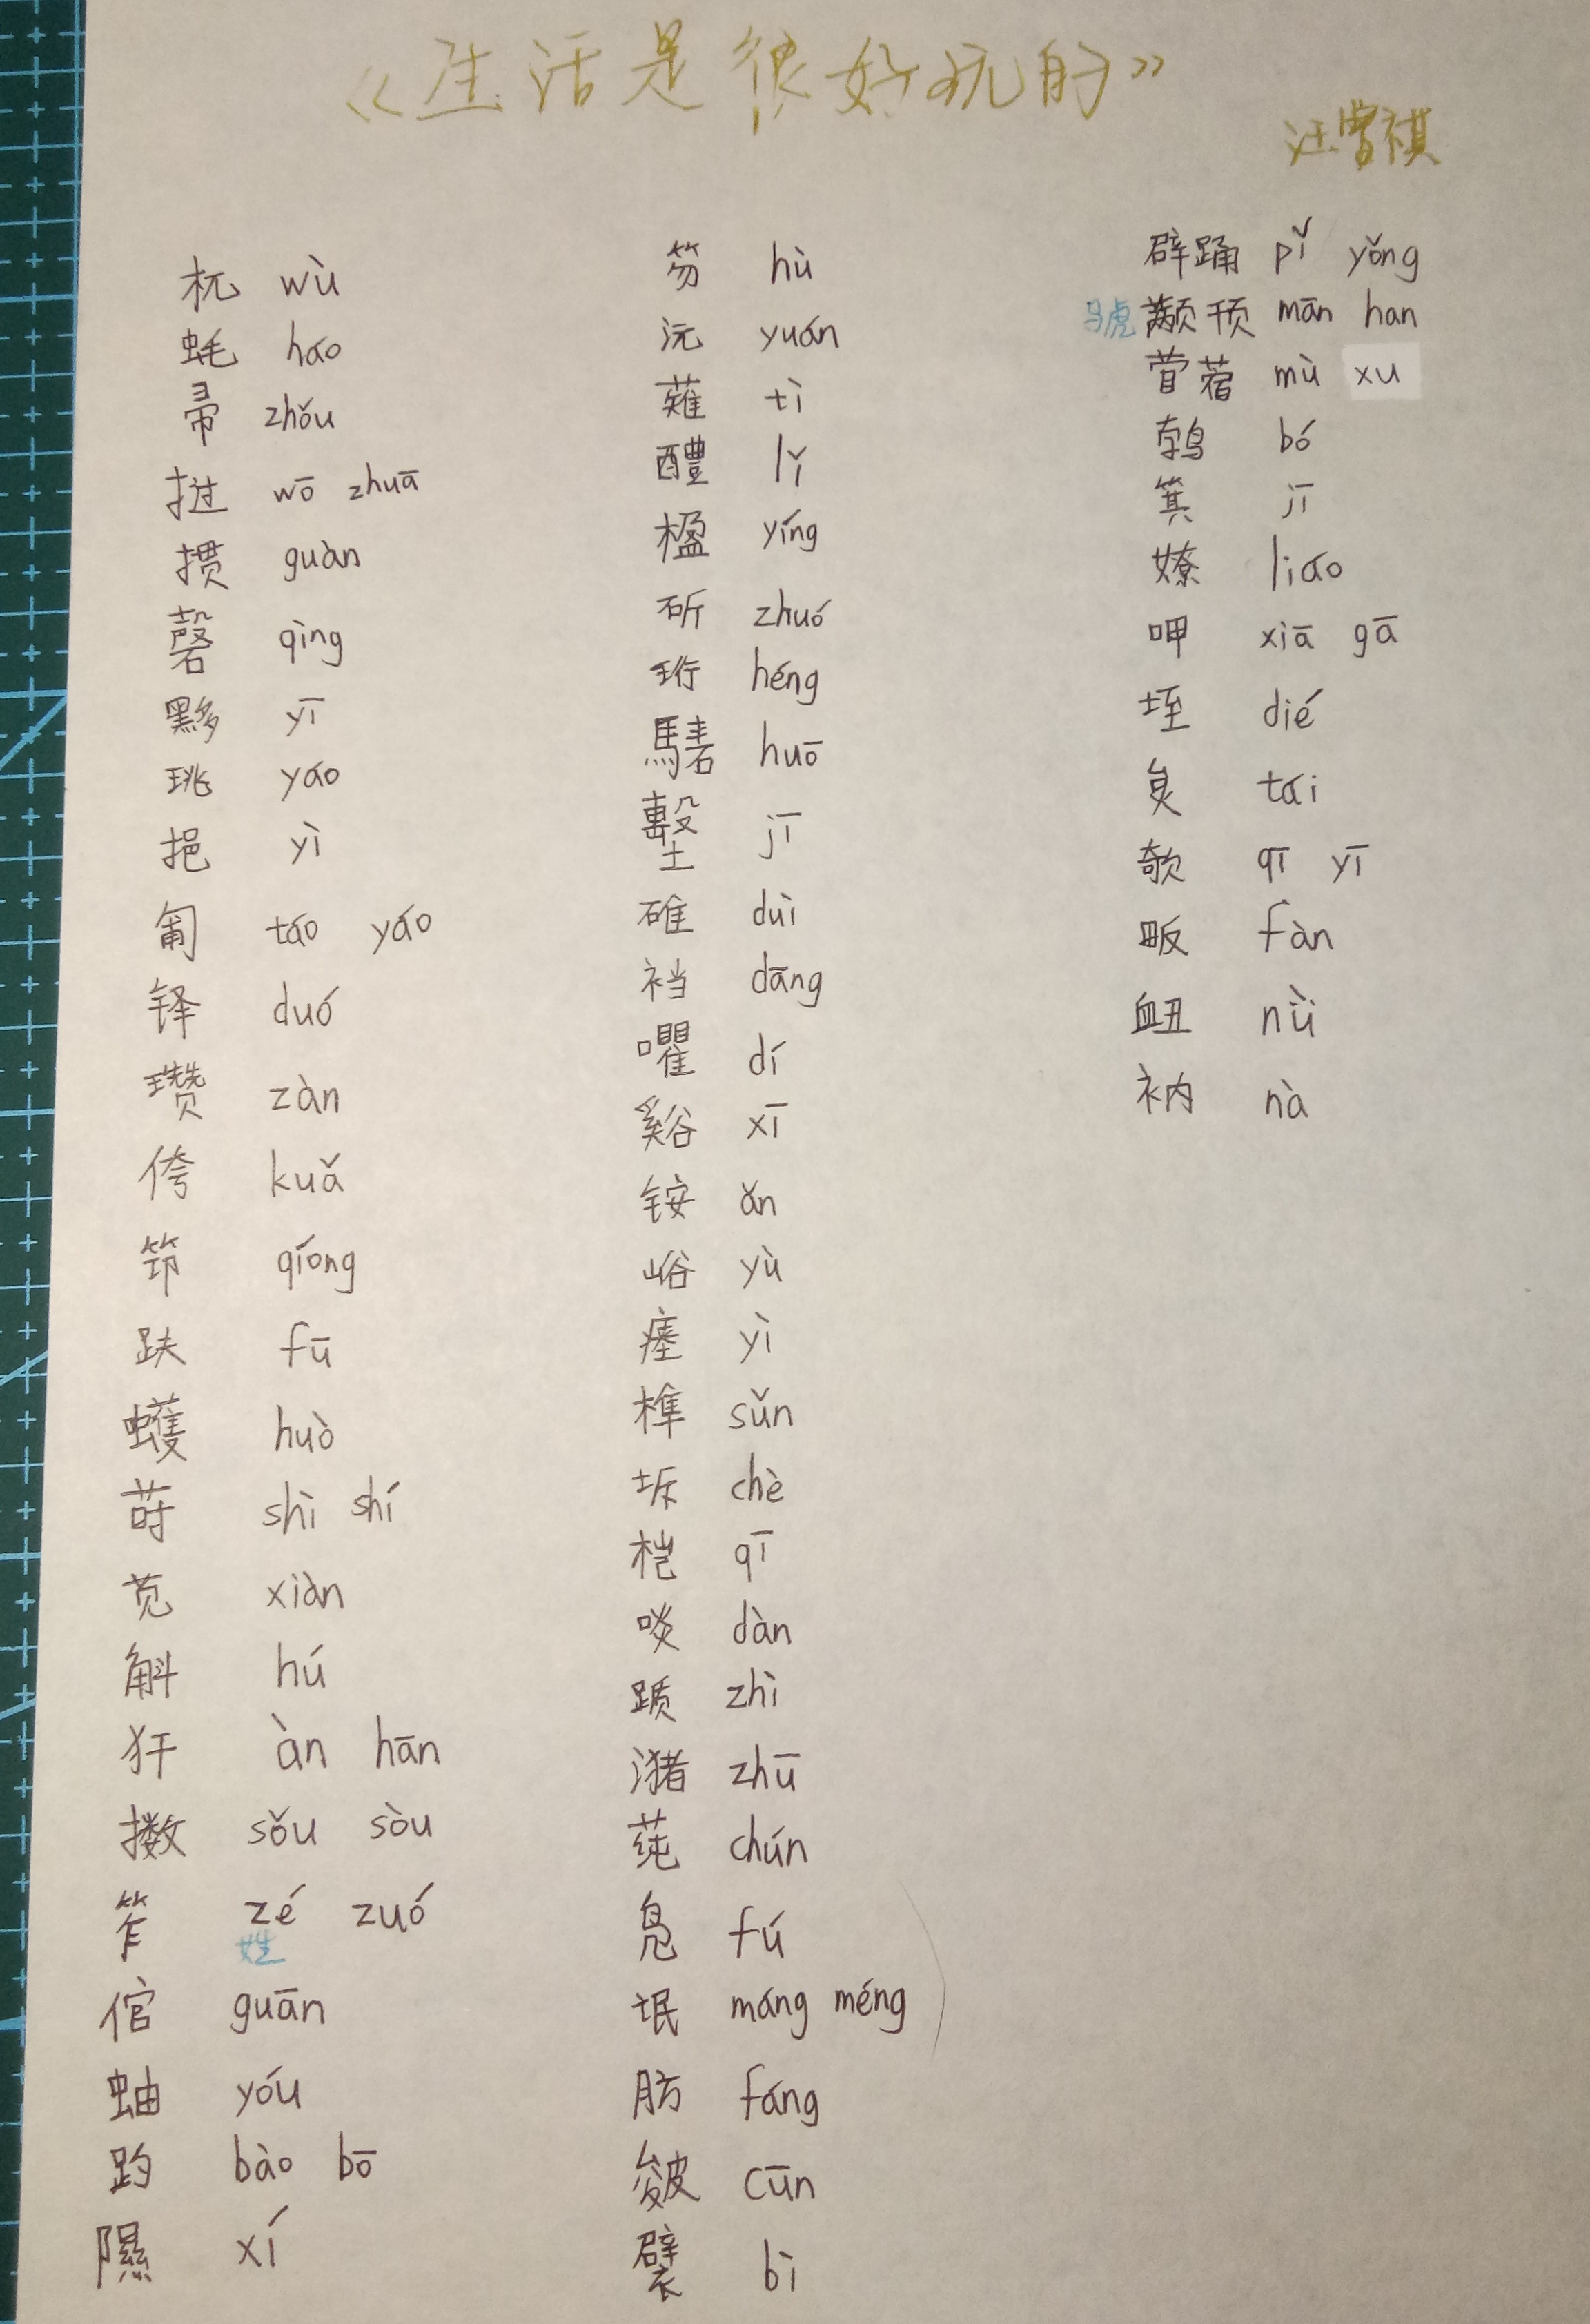 《生活是很好玩的》
汪曾祺
杌 wù
蚝 háo
帚 zhǒu
挝 wō zhuā
掼 guàn
磬 qìng
黟 yī
珧 yáo
挹 yì
匋 táo yáo
铎 duó
瓒 zàn
侉 kuǎ
筇 qióng
趺 fū
蠖 huò
莳 shì shí
苋 xiàn
斛 hú
犴 àn hān
擞 sǒu sòu
笮 zé zuó
姓
倌 guān
蚰 yóu
趵 bào bō
隰 xí
笏 hù
沅 yuán
薙 tì
醴 lǐ
楹 yíng
斫 zhuó
珩 héng
騞 huō
墼 jī
碓 duì
裆 dāng
嚁 dí
谿 xī
铵 ǎn
峪 yù
瘗 yì
榫 sǔn
坼 chè
桤 qī
啖 dàn
踬 zhì
潴 zhū
莼 chún
凫 fú
氓 máng méng
肪 fáng
皴 cūn
襞 bì
辟踊 pǐ yǒng
马虎 颟顸 mān han
苜蓿 mù xu
鹁 bó
箕 jī
嫽 liáo
呷 xiā gā
垤 dié
炱 tái
欹 qī yī
畈 fàn
衄 nǜ
衲 nà